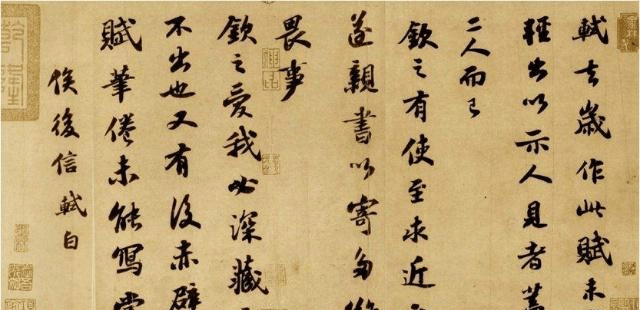 軾去歲作此賦未
輕出以示人見者蓋
二人而已
欽之有使至求近
遂親書以寄多難
畏事
欽之愛我必深藏
不出也又有後赤壁
賦筆倦未能寫當
俟後信軾白